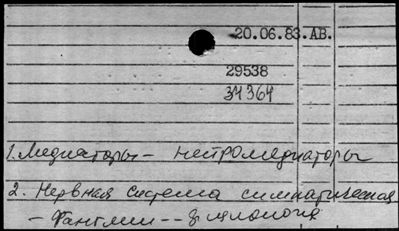 20.06.83.АВ.
29538
34364
1. Медиаторы - нейромедиаторы
2. Нервная система симпатическая
- Ганглии -- физиология